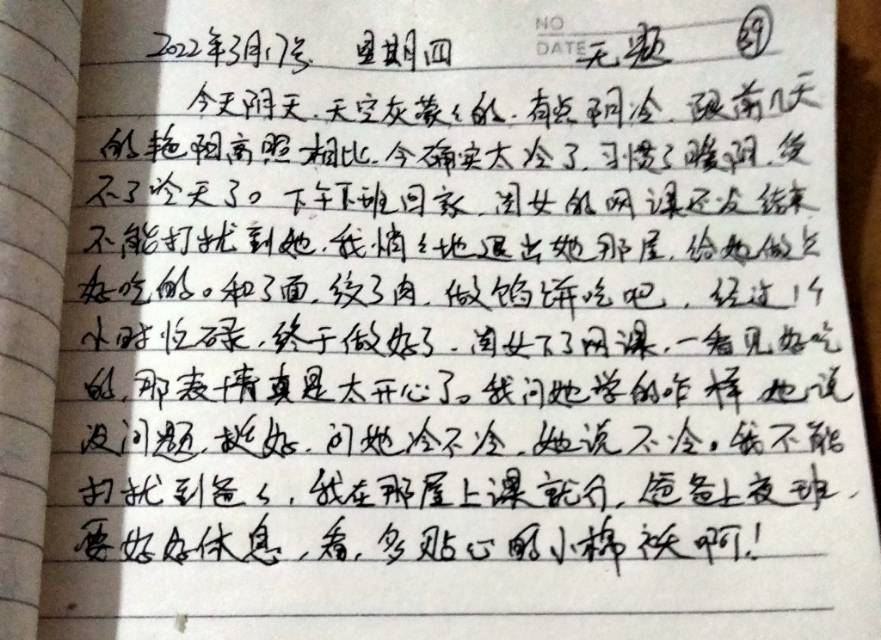 NO
DATE
2022年3月17号 星期四 无题 39
今天阴天,天空灰蒙々的,有点阴冷,跟前几天
的艳阳高照相比,今确实太冷了,习惯了暖阳,受
不了冷天了。下午下班回家,闺女的网课还没结束
不能打扰到她,我悄々地退出她那屋,给她做点
好吃的。和了面,绞了肉,做馅饼吃吧,经过1个
小时忙碌,终于做好了,闺女下了网课,一看见好吃
的,那表情真是太开心了。我问她学的咋样她说
没问题,挺好,问她冷不冷,她说不冷。我不能
打扰到爸々,我在那屋上课就行,爸爸上夜班,
要好好休息,看,多贴心的小棉袄啊!